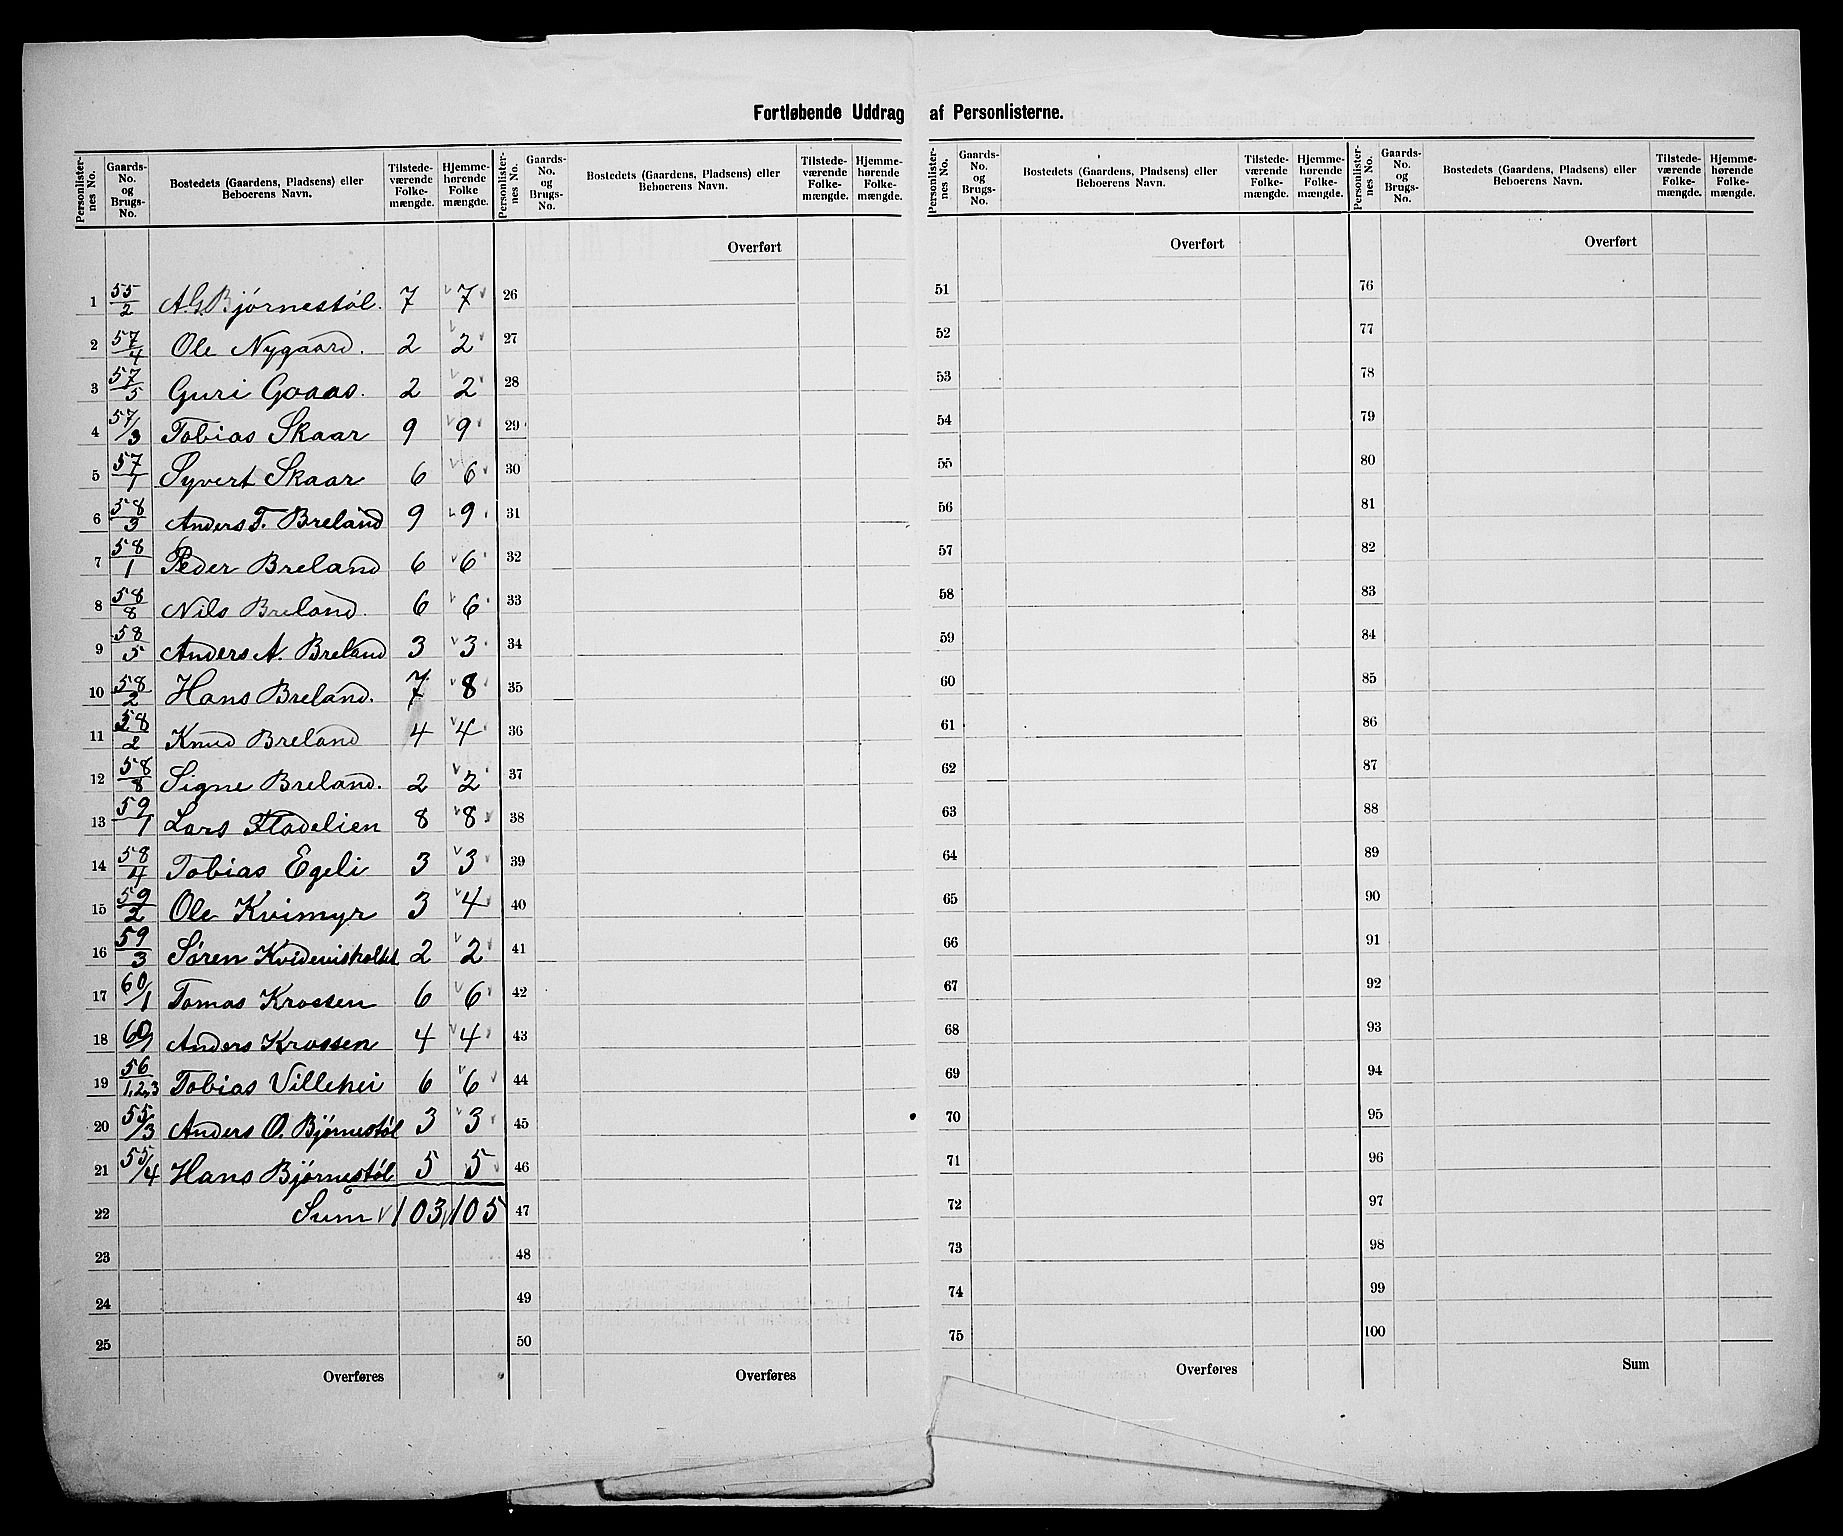 Fortløbende Uddrag af Personlisterne.
Personlister-nes No. | Gaards-No. og Brugs-No. | Bostedets (Gaardens, Pladsens) eller Beboerens Navn. | Tilstede-værende Folke-mængde. | Hjemme-hørende Folke mængde.
1 55/2 A. G. Bjørnestøl. 7 7
2 57/4 Ole Nygaard. 2 2
3 57/5 Guri Goaas. 2 2
4 57/3 Tobias Skaar 9 9
5 57/1 Syvert Skaar 6 6
6 58/3 Anders T. Breland 9 9
7 58/1 Peder Breland 6 6
8 58/8 Nils Breland. 6 6
9 58/5 Anders A. Breland 3 3
10 58/2 Hans Breland. 7 8
11 58/2 Knud Breland 4 4
12 58/8 Signe Breland. 2 2
13 59/1 Lars Fladelien 8 8
14 58/4 Tobias Egeli 3 3
15 59/2 Ole Kvimyr 3 4
16 59/3 Søren 2 2
17 60/1 Tomas Krossen 6 6
18 60/1 Anders Krossen 4 4
19 56/1,2,3 Tobias Villehei 6 6
20 55/3 Anders O. Bjørnestøl 3 3
21 55/4 Hans Bjørnestøl 5 5
22 Sum 103 105
23
24
25
Overføres
Personlister-nes No. | Gaards-No. og Brugs-No. | Bostedets (Gaardens, Pladsens) eller Beboerens Navn. | Tilstede-værende Folke-mængde. | Hjemme-hørende Folke-mængde.
Overført
26
27
28
29
30
31
32
33
34
35
36
37
38
39
40
41
42
43
44
45
46
47
48
49
50
Overføres
Personlister-nes No. | Gaards-No. og Brugs-No. | Bostedets (Gaardens, Pladsens) eller Beboerens Navn. | Tilstede-værende Folke-mængde. | Hjemme-hørende Folke-mængde.
Overført
51
52
53
54
55
56
57
58
59
60
61
62
63
64
65
66
67
68
69
70
71
72
73
74
75
Overføres
Personlister-nes No. | Gaards-No. og Brugs-No. | Bostedets (Gaardens, Pladsens) eller Beboerens Navn. | Tilstede-værende Folke-mængde. | Hjemme-hørende Folke-mængde.
Overført
76
77
78
79
80
81
82
83
84
85
86
87
88
89
90
91
92
93
94
95
96
97
98
99
100
Sum